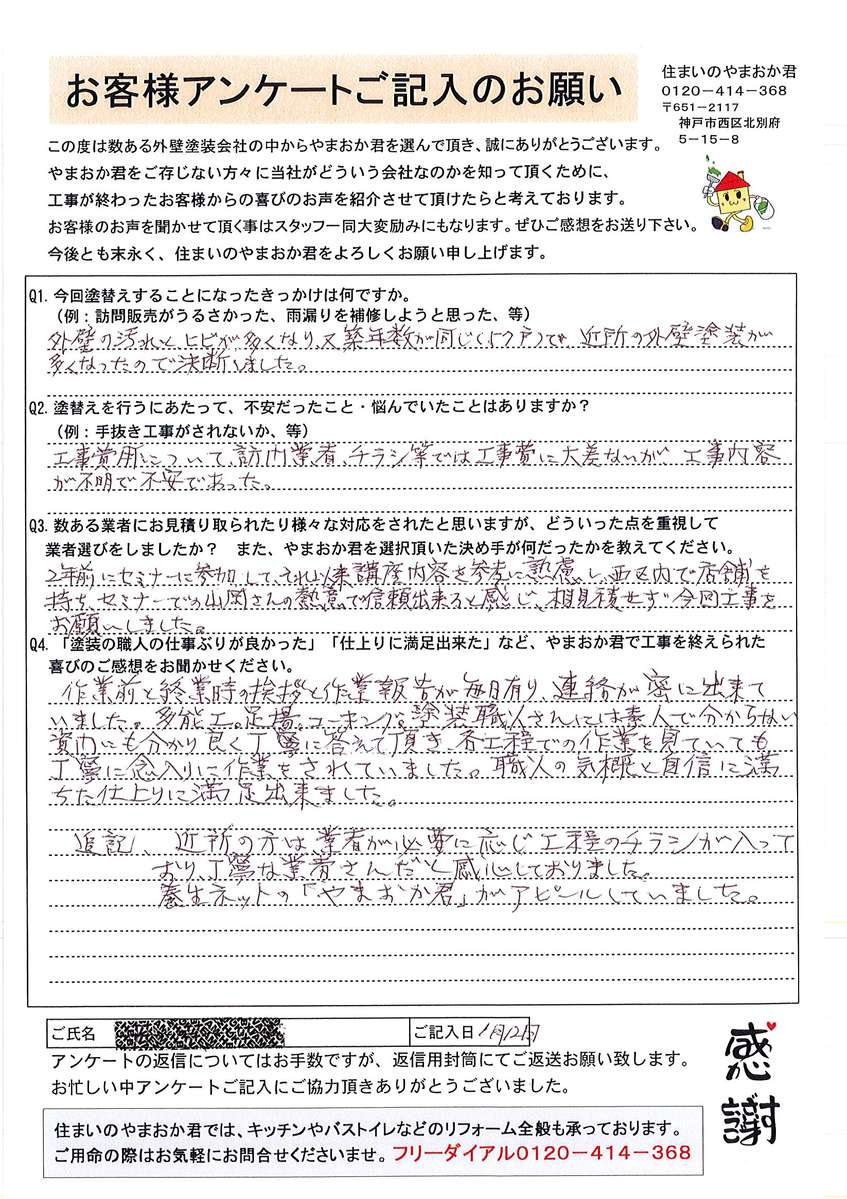 お客様アンケートご記入のお願い
住まいのやまおか君
0120-414-368
〒651-2117
神戸市西区北別府
5-15-8
この度は数ある外壁塗装会社の中からやまおか君を選んで頂き、誠にありがとうございます。
やまおか君をご存じない方々に当社がどういう会社なのかを知って頂くために、
工事が終わったお客様からの喜びのお声を紹介させて頂けたらと考えております。
お客様のお声を聞かせて頂く事はスタッフ一同大変励みにもなります。ぜひご感想をお送り下さい。
今後とも末永く、住まいのやまおか君をよろしくお願い申し上げます。
Q1. 今回塗替えすることになったきっかけは何ですか。
(例:訪問販売がうるさかった、雨漏りを補修しようと思った、等)
外壁の汚れとヒビが多くなり、又築年数が同じく(17戸)で、近所の外壁塗装が
多くなったので決断しました。
Q2. 塗替えを行うにあたって、不安だったこと・悩んでいたことはありますか?
(例:手抜き工事がされないか、等)
工事費用について、訪内業者、チラシ等では工事費に大差ないが、工事内容
が不明で不安であった。
Q3. 数ある業者にお見積り取られたり様々な対応をされたと思いますが、どういった点を重視して
業者選びをしましたか? また、やまおか君を選択頂いた決め手が何だったかを教えてください。
2年前にセミナーに参加して、それ以来講座内容を参考に熟慮し、西区内で店舗を
持ち、セミナーでの山岡さんの熱意で信頼出来ると感じ、相見積せず今回工事を
お願いしました。
Q4. 「塗装の職人の仕事ぶりが良かった」「仕上りに満足出来た」など、やまおか君で工事を終えられた
喜びのご感想をお聞かせください。
作業前と終業時の挨拶と作業報告が毎日有り、連絡が密に出来て
いました。多能工、足場、コーキング、塗装職人さんには素人で分からない
質内にも分かり良く丁寧に答えて頂き、各工程での作業を見ていても
丁寧に念入りに作業をされていました。職人の気概と自信に満
ちた仕上りに満足出来ました。
追記、近所の方は、業者が必要に応じ工程のチラシが入って
おり、丁寧な業者さんだと感心しておりました。
養生ネットの「やまおか君」がアピールしていました。
ご氏名
ご記入日 1月12日
アンケートの返信についてはお手数ですが、返信用封筒にてご返送お願い致します。
お忙しい中アンケートご記入にご協力頂きありがとうございました。
感謝
住まいのやまおか君では、キッチンやバストイレなどのリフォーム全般も承っております。
ご用命の際はお気軽にお問合せくださいませ。フリーダイアル0120-414-368